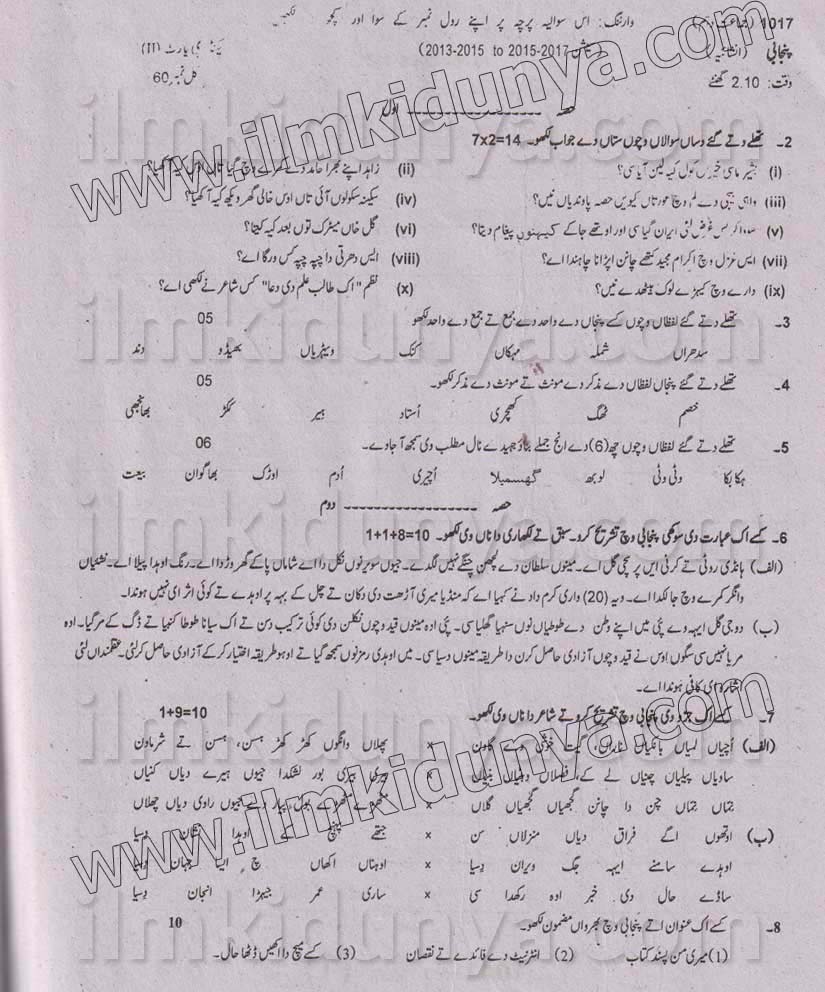 1017 وارننگ: اس سوالیہ پرچہ پر اپنے رول نمبر کے سوا اور کچھ نہ لکھیں
پنجابی (انشائیہ) (سیشن 2013-2015 to 2015-2017) پارٹ (II)
وقت: 2.10 گھنٹے کل نمبر 60
حصہ اول
2۔ تھلے دتے گئے دساں سوالاں وچوں ستاں دے جواب لکھو۔ 7x2=14
(i) بشیر ماسی خیراں کول کیہ لین آیا سی؟ (ii) زاہد اپنے بھرا حامد دے کمرے وچ گیا تاں اوس کیہ آکھیا؟
(iii) واہی بیجی دے کم وچ عورتاں کیویں حصہ پاوندیاں نیں؟ (iv) سکینہ سکولوں آئی تاں اوس خالی گھر ویکھ کیہ آکھیا؟
(v) کس غرض لئی ایران گیا سی اور اوتھے جا کے کیہنوں پیغام دیتا؟ (vi) گل خاں میٹرک توں بعد کیہ کیتا؟
(vii) ایس غزل وچ اکرام مجید کتھے چانن اپڑانا چاہندا اے؟ (viii) ایس دھرتی دا چپہ چپہ کس ورگا اے؟
(ix) دارے وچ کیہڑے لوک بیٹھدے نیں؟ (x) نظم "اک طالب علم دی دعا" کس شاعر نے لکھی اے؟
3۔ تھلے دتے گئے لفظاں وچوں کسے پنجاں دے واحد دے جمع تے جمع دے واحد لکھو 05
سدھراں شملہ مہکاں کنک ویہڑیاں بھیڈو دند
4۔ تھلے دتے گئے پنجاں لفظاں دے مذکر دے مونث تے مونث دے مذکر لکھو۔ 05
خصم ٹھگ کھچری اُستاد ہیر ککڑ بھانجی
5۔ تھلے دتے گئے لفظاں وچوں چھ (6) دے انج جملے بناؤ جیہدے نال مطلب وی سمجھ آ جاوے۔ 06
ہکا بکا وٹی وٹی لوبھ گھسمیلا اُچیری اُدم اوڑک بھاگوان بیعت
حصہ دوم
6۔ کسے اک عبارت دی سوکھی پنجابی وچ تشریح کرو۔ سبق تے لکھاری دا ناں وی لکھو۔ 1+1+8=10
(الف) ہانڈی روٹی تے کرنی ایس پر سچی گل اے۔ مینوں سلطان دے لچھن چنگے نہیں لگدے۔ جیوں سویرنوں نکل دا اے شاماں پا کے گھر وڑدا اے۔ رنگ اوہدا پیلا اے۔ نشئیاں
وانگر کمرے وچ جا لکدا اے۔ ویہ (20) واری کرم داد نے کہیا اے کہ منڈیا میری آڑھت دی دکان تے چل کے بہہ پر اوہدے تے کوئی اثر ای نہیں ہوندا۔
(ب) دوجی گل ایہہ وے پئی میں اپنے وطن دے طوطیاں نوں سنہیا گھلیا سی۔ پئی اوہ مینوں قید وچوں نکلن دی کوئی ترکیب دسن تے اک سیانا طوطا کنبیا تے ڈگ کے مر گیا۔ اوہ
مریا نہیں سی سگوں اوس نے قید وچوں آزادی حاصل کرن دا طریقہ مینوں دسیا سی۔ میں اوہدی رمز نوں سمجھ گیا تے اوہو طریقہ اختیار کر کے آزادی حاصل کر لئی۔ عقلمنداں لئی
اشارہ ای کافی ہوندا اے۔
7۔ کسے اک جزو دی پنجابی وچ تشریح کرو تے شاعر دا ناں وی لکھو۔ 1+9=10
(الف) اُچیاں لمیاں بانکیاں ناراں، گیت خوشی دے گاون x پھلاں وانگوں کھڑ کھڑ ہسن، ہسن تے شرماون
ساویاں پیلیاں چنیاں لے کے، فصلاں x بیری بور لشکدا جیوں ہیرے دیاں کنیاں
جتھاں جتھاں چن دا چانن گجھیاں گجھیاں گلاں x مٹھڑے مٹھڑے بول پیار دے جیوں راوی دیاں چھلاں
(ب) اوتھوں اگے فراق دیاں منزلاں سن x جتھے پہنچ کے اوہدا نشان دسیا
اوہدے سامنے ایہہ جگ ویران دسیا x اوہناں اکھاں چ ایسا جہان دسیا
ساڈے حال دی خبر اوہ رکھدا سی x ساری عمر جیہڑا انجان دسیا
8۔ کسے اک عنوان اتے پنجابی وچ بھرواں مضمون لکھو۔ 10
(1) میری من پسند کتاب (2) انٹرنیٹ دے فائدے تے نقصان (3) کسے میچ دا اکھیں ڈٹھا حال۔
www.ilmkidunya.com